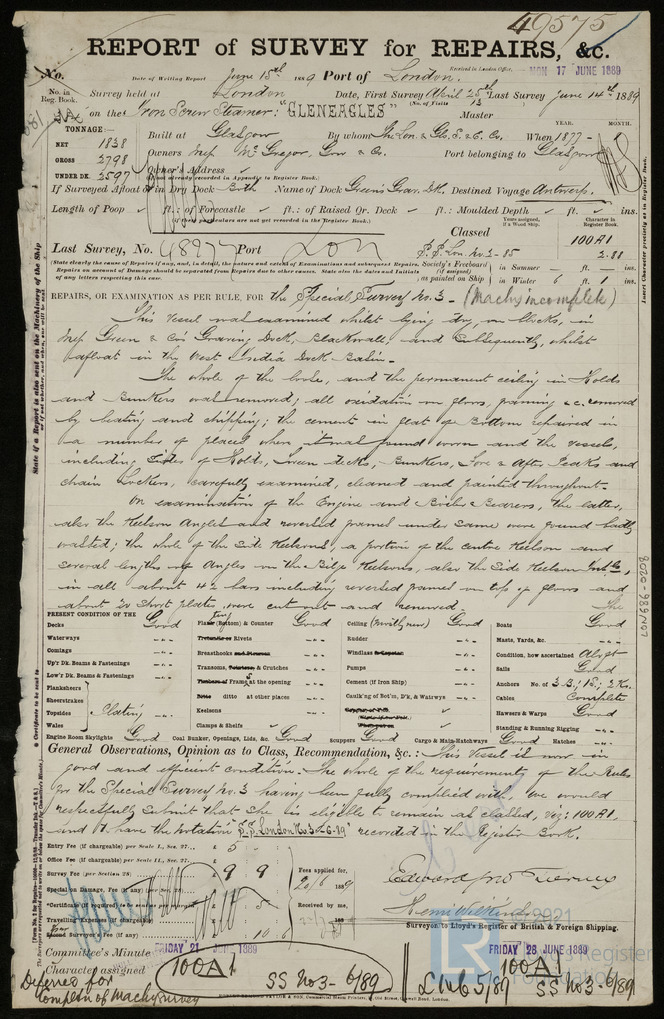 49575
REPORT of SURVEY for REPAIRS, &c.
No. Date of Writing Report June 15th 1889 Port of London. Received in London Office, MON 17 JUNE 1889
No. in Reg. Book. Survey held at London Date, First Survey April 25th Last Survey June 14th 1889
(No. of Visits 13
on the Iron Screw Steamer: "GLENEAGLES" Master
TONNAGE: YEAR. MONTH.
Built at Glasgow By whom The Lon. & Gls. E. & C. Co. When 1877
NET 1838
GROSS 2798
UNDER DK. 2597
Owners Mess McGregor, Gow & Co. Port belonging to Glasgow
Owner's Address
(If not already recorded in Appendix to Register Book.)
If Surveyed Afloat or in Dry Dock Both Name of Dock Green's Grav. Dk. Destined Voyage Antwerp.
Length of Poop ft.: of Forecastle ft.: of Raised Qr. Deck ft.: Moulded Depth ft. ins.
(If these particulars are not set record in the Register Book.)
Classed 100A1
Last Survey, No. 48277 Port Lon
S.S. Lon. No. 2-85 2.88
Society's Freeboard (if assigned) as painted on Ship in Summer ft. ins.
in Winter ft. ins.
REPAIRS, OR EXAMINATION AS PER RULE, FOR the Special Survey No. 3 - (Machy incomplete)
This Vessel was examined whilst lying dry, on blocks, in
Mess Green & Co's Graving Dock, Blackwall, and subsequently, whilst
afloat in the West India Dock Basin.
The whole of the limber, and the permanent ceiling in Holds
and Bunkers was removed; all oxidation on floors, framing &c. removed
by beating and chipping; the cement in flat of Bottom repaired in
a number of places where it was found worn and the vessels,
including sides of Holds, 'tween decks, Bunkers, Fore & After Peaks and
chain Lockers, carefully examined, cleaned and painted throughout.
On examination of the Engine and Boiler Bearers, the latter,
also the Keelson Angles and reversed frames under same were found badly
wasted; the whole of the Side Keelsons a portion of the centre Keelson and
several lengths of Angles on the Bilge Keelsons, also the Side Keelson Intls,
in all about 42 bars including reversed frames on top of floors and
about 20 short plates were cut out and renewed. The
PRESENT CONDITION OF THE
Decks Good
Waterways
Comings
Up'r Dk. Beams & Fastenings
Low'r Dk. Beams & Fastenings
Planksheers
Sheerstrakes
Topsides Plating
Wales
Engine Room Skylights Good
Plating (Bottom) & Counter Good
Treenails or Rivets
Breasthooks and Pointers
Transoms, Pointers, & Crutches
Timbers of Frame
Ditto ditto at other places
Keelsons
Clamps & Shelfs
Coal Bunker, Openings, Lids, &c. Good
Ceiling (Partly new) Good
Rudder
Windlass & Capstan
Pumps
Cement (if Iron Ship)
Caulk'ng of Bot'm, D'k, & Watrwys
Scuppers Good
Cargo & Main Hatchways Good
Boats Good
Masts, Yards, &c.
Condition, how ascertained Aloft
Sails Good
Anchors No. of 3 B.; 1 S.; 2 K.
Cables Complete
Hawsers & Warps Good
Standing & Running Rigging
Hatches
General Observations, Opinion as to Class, Recommendation, &c.: This Vessel is now in
good and efficient condition. The whole of the requirements of the Rules
for the Special Survey No. 3 having been fully complied with, we would
respectfully submit that she is eligible to remain as classed, viz: 100A1,
and to have the notation "S.S. London No 3-6-89" recorded in the Register Book.
Entry Fee (if chargeable) per Scale I., Sec. 27
Office Fee (if chargeable) per Scale II., Sec. 27
Survey Fee (per Section 28) £ 9 9
Special or Damage, Fee (if any) (per Sec. 28)
*Certificate (if required) to be sent as per margin
Travelling Expenses (if chargeable)
Second Surveyor's Fee (if any)
Fees applied for, 20/6 1889
Received by me,
Surveyor to Lloyd's Register of British & Foreign Shipping.
Committee's Minute FRIDAY 21 JUNE 1889
FRIDAY 28 JUNE 1889
Character assigned 100A1
SS No 3 - 6/89
LMC 6/89 100A1 SS No 3 - 6/89
Deferred for
Completn of Machy survey
LON986-0208
State if a Report is also sent on the Machinery of the Ship
Insert Character precisely as in Register Book.
Lloyd's Register
Foundation